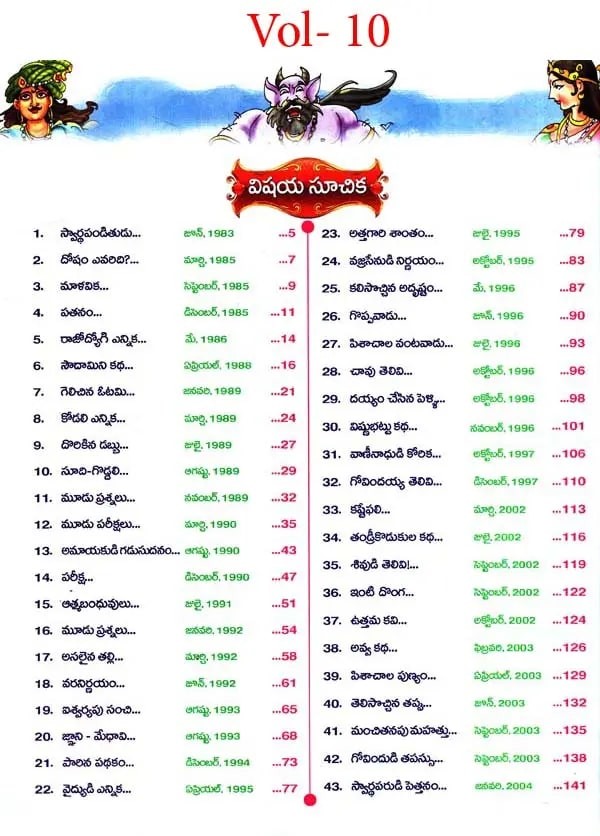 Vol- 10
విషయ సూచిక
1. స్వార్థపండితుడు... జూన్, 1983 ...5
2. దోషం ఎవరిది?... మార్చి, 1985 ...7
3. మాళవిక... సెప్టెంబర్, 1985 ...9
4. పతనం... డిసెంబర్, 1985 ...11
5. రాజోద్యోగి ఎన్నిక... మే, 1986 ...14
6. సౌదామిని కథ... ఏప్రియల్, 1988 ...16
7. గెలిచిన ఓటమి... జనవరి, 1989 ...21
8. కోడలి ఎన్నిక... మార్చి, 1989 ...24
9. దొరికిన డబ్బు... జులై, 1989 ...27
10. సూది-గొడ్డలి... ఆగష్టు, 1989 ...29
11. మూడు ప్రశ్నలు... నవంబర్, 1989 ...32
12. మూడు పరీక్షలు... మార్చి, 1990 ...35
13. అమాయకుడి గడుసుదనం... ఆగష్టు, 1990 ...43
14. పరీక్ష... డిసెంబర్, 1990 ...47
15. ఆత్మబంధువులు... జులై, 1991 ...51
16. మూడు ప్రశ్నలు... జనవరి, 1992 ...54
17. అసలైన తల్లి... మార్చి, 1992 ...58
18. వరనిర్ణయం... జూన్, 1992 ...61
19. ఐశ్వర్యపు సంచి... ఆగష్టు, 1993 ...65
20. జ్ఞాని - మేధావి... ఆగష్టు, 1993 ...68
21. పారిన పథకం... డిసెంబర్, 1994 ...73
22. వైద్యుడి ఎన్నిక... ఏప్రియల్, 1995 ...77
23. అత్తగారి శాంతం... జులై, 1995 ...79
24. వజ్రసేనుడి నిర్ణయం... అక్టోబర్, 1995 ...83
25. కలిసొచ్చిన అదృష్టం... మే, 1996 ...87
26. గొప్పవాడు... జూన్, 1996 ...90
27. పిశాచాల వంటవాడు... జులై, 1996 ...93
28. చావు తెలివి... అక్టోబర్, 1996 ...96
29. దయ్యం చేసిన పెళ్ళి... అక్టోబర్, 1996 ...98
30. విష్ణుభట్టు కథ... నవంబర్, 1996 ...101
31. వాణీనాధుడి కోరిక... అక్టోబర్, 1997 ...106
32. గోవిందయ్య తెలివి... డిసెంబర్, 1997 ...110
33. కష్టేఫలి... మార్చి, 2002 ...113
34. తండ్రీకొడుకుల కథ... జులై, 2002 ...116
35. శివుడి తెలివి!... సెప్టెంబర్, 2002 ...119
36. ఇంటి దొంగ... సెప్టెంబర్, 2002 ...122
37. ఉత్తమ కవి... అక్టోబర్, 2002 ...124
38. అవ్వ కథ... ఫిబ్రవరి, 2003 ...126
39. పిశాచాల పుణ్యం... ఏప్రియల్, 2003 ...129
40. తెలిసొచ్చిన తప్పు... జూన్, 2003 ...132
41. మంచితనపు మహత్తు... సెప్టెంబర్, 2003 ...135
42. గోవిందుడి తపస్సు... సెప్టెంబర్, 2003 ...138
43. స్వార్థపరుడి పెత్తనం... జనవరి, 2004 ...141